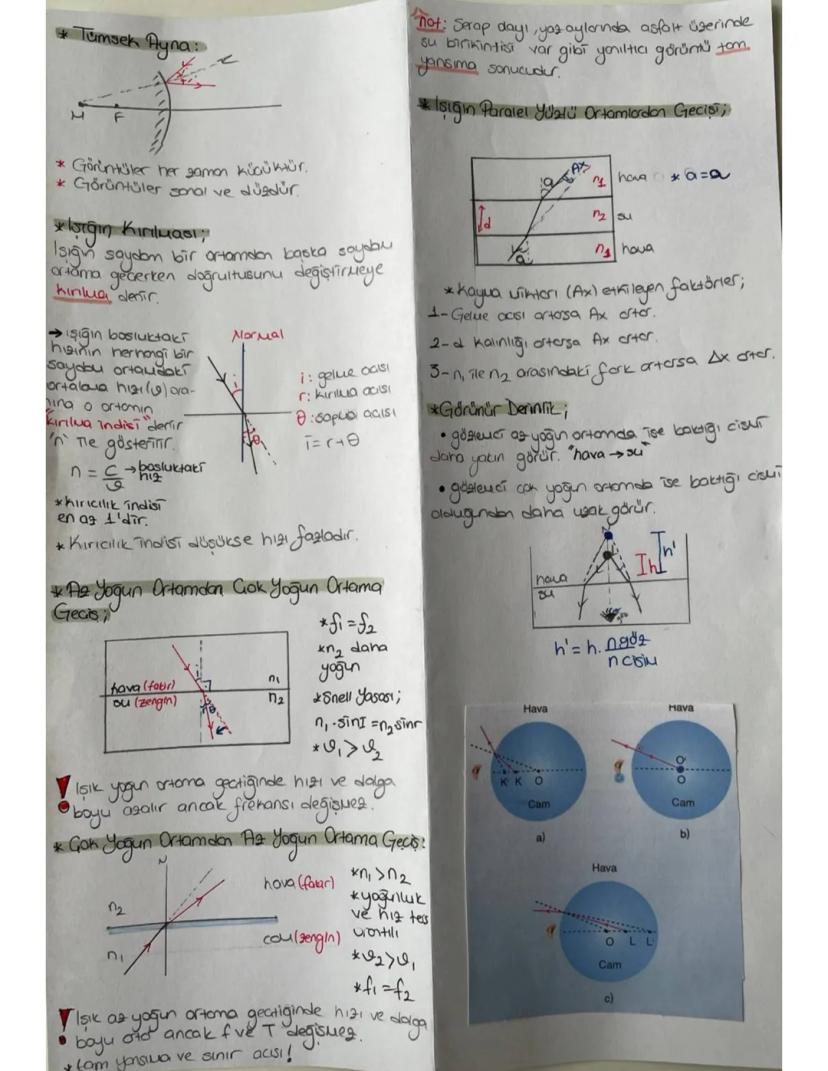 * Tümsek Ayna:
M F
* Görüntüler her zaman küçüktür.
* Görüntüler sanal ve düzdür.
* Işığın Kırılması;
Işığın saydam bir ortamdan başka saydam
ortama geçerken doğrultusunu değiştirmeye
kırılma denir.
→ ışığın boşluktaki
hızının herhangi bir
saydam ortamdaki
ortalama hızı(υ) ora-
nına o ortamın
"kırılma indisi" denir
'n' ile gösterilir.
n = c/υ → boşluktaki hız
* kırıcılık indisi
en az 1'dir.
* Kırıcılık indisi düşükse hızı fazladır.
Normal
i
θ
i: gelme açısı
r: kırılma açısı
θ: sapma açısı
i = r+θ
* Az Yoğun Ortamdan Çok Yoğun Ortama
Geçiş;
hava (fakir) n1
su (zengin) n2
* f1 = f2
* n2 daha
yoğun
* Snell Yasası;
n1.sinI = n2sinr
* υ1 > υ2
! Işık yoğun ortama geçtiğinde hızı ve dalga
boyu azalır ancak frekansı değişmez.
* Çok Yoğun Ortamdan Az Yoğun Ortama Geçiş:
N
n2
n1
hava (fakir)
cam (zengin)
* n1 > n2
* yoğunluk
ve hız ters
orantılı
* υ2 > υ1
* f1 = f2
! Işık az yoğun ortama geçtiğinde hızı ve dalga
boyu artar ancak f ve T değişmez.
* tam yansıma ve sınır açısı!
not: Serap olayı, yaz aylarında asfalt üzerinde
su birikintisi var gibi yanıltıcı görüntü tam
yansıma sonucudur.
* Işığın Paralel Yüzlü Ortamlardan Geçişi;
a Δx n1 hava * a = a
d n2 su
a n1 hava
* Kayma miktarı (Δx) etkileyen faktörler;
1- Gelme açısı artarsa Δx artar.
2- d kalınlığı artarsa Δx artar.
3- n1 ile n2 arasındaki fark artarsa Δx artar.
* Görünür Derinlik;
• gözlemci az yoğun ortamda ise baktığı cismi
daha yakın görür. "hava → su"
• gözlemci çok yoğun ortamda ise baktığı cismi
olduğundan daha uzak görür.
h h'
hava
su
h' = h. ngöz / ncisim
Hava
K' K O
Cam
a)
Hava
O'
O
Cam
b)
Hava
O L L'
Cam
c)